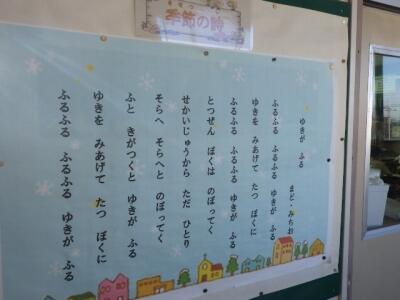 季節の詩
ゆきが ふる
まど・みちお
ふるふる ふるふる ゆきが ふる
ゆきを みあげて たつ ぼくに
ふるふる ふるふる ゆきが ふる
とつぜん ぼくは のぼってく
せかいじゅうから ただ ひとり
そらへ そらへと のぼってく
ふと きがつくと ゆきが ふる
ゆきを みあげて たつ ぼくに
ふるふる ふるふる ゆきが ふる